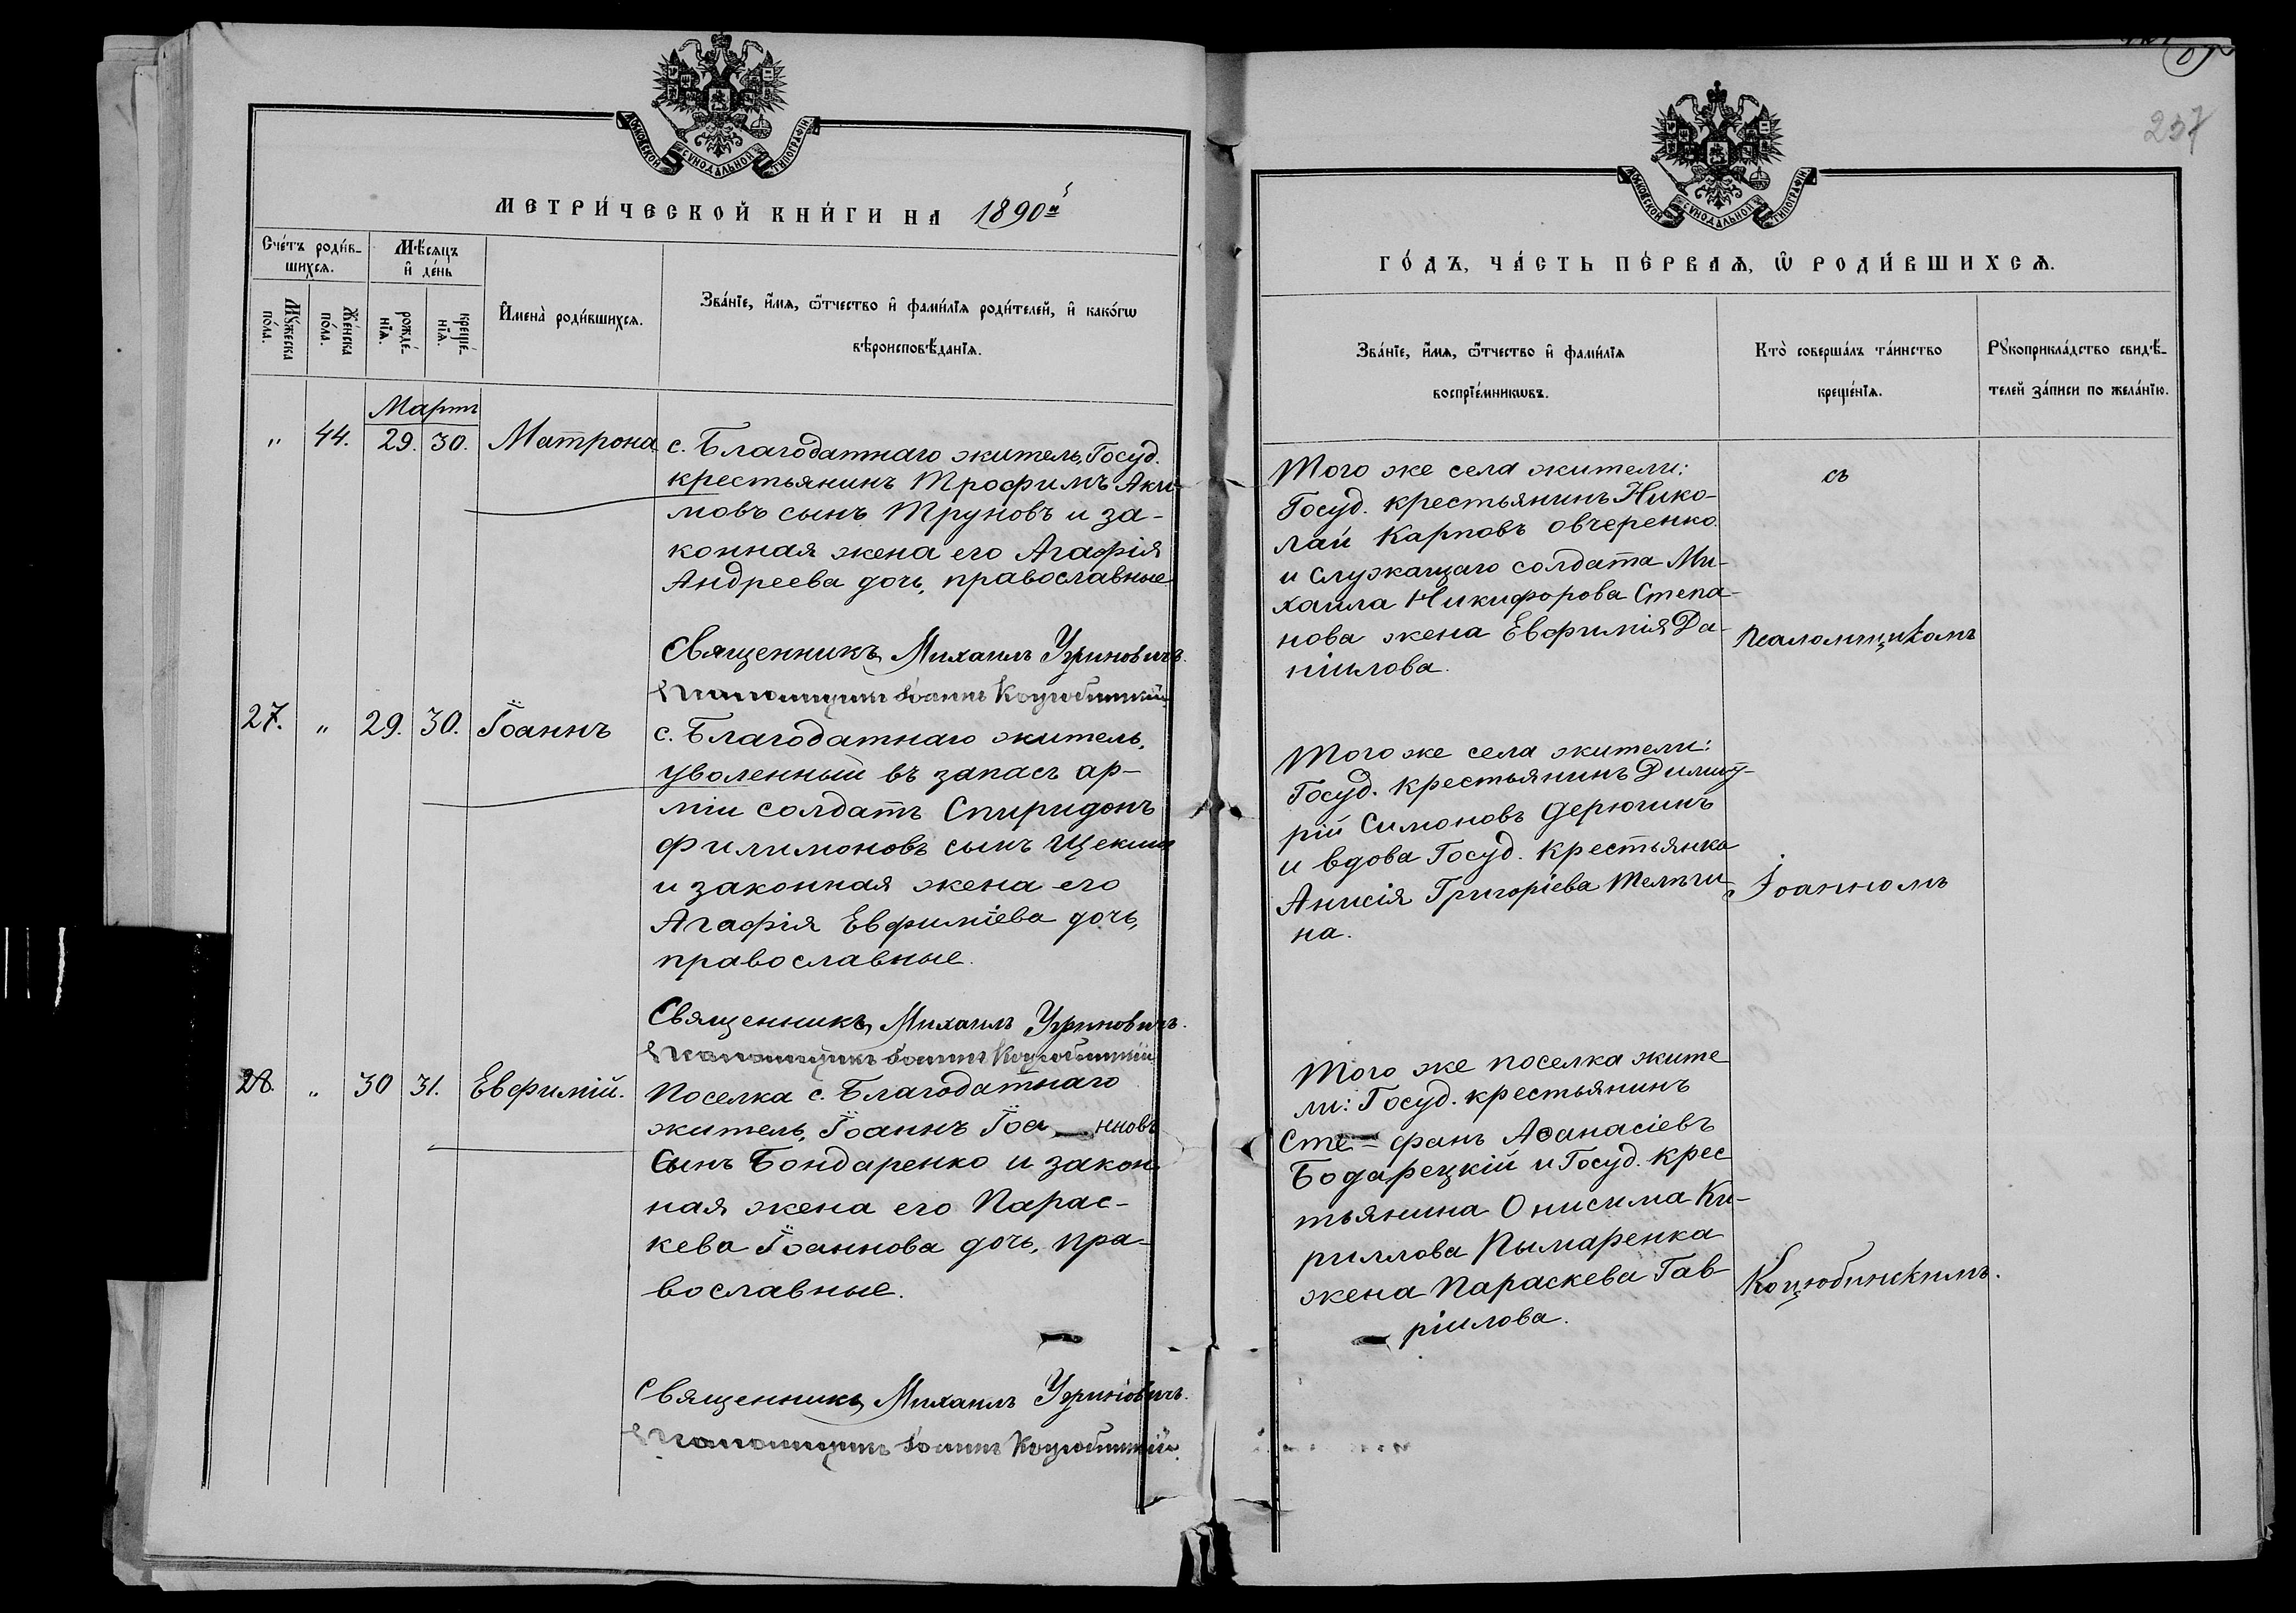 МОСКОВСКОЙ СѴНОДАЛЬНОЙ ТИПОГРАФІИ
МЕТРИ́ЧЕСКОЙ КНИ́ГИ НА 1890й
Сче́тъ роди́в-
шихсѧ.
Мѣ́сѧцъ
и҆ де́нь
Мꙋ́жеска
по́ла.
Же́нска
по́ла.
рожде́-
нїѧ.
креще́-
нїѧ.
И҆мена̀ роди́вшихсѧ.
Зва́нїе, и҆́мѧ, ѻ҆́тчество и҆ фами́лїѧ роди́телей, и҆ како́гѡ
вѣроисповѣ́данїѧ.
Мартъ
" 44. 29. 30. Матрона
с. Благодатнаго житель, Госуд.
крестьянинъ Трофимъ Аки-
мовъ сынъ Труновъ и за-
конная жена его Агафія
Андреева дочь, православные
Священникъ Михаилъ Угриновичъ.
Псаломщикъ Іоаннъ Коцюбинскій.
27. " 29. 30. Іоаннъ
с. Благодатнаго житель,
уволенный въ запасъ ар-
міи солдатъ Спиридонъ
Филимоновъ сынъ Щекинъ
и законная жена его
Агафія Евфиміева дочь,
православные.
Священникъ Михаилъ Угриновичъ.
Псаломщикъ Іоаннъ Коцюбинскій.
28. " 30 31. Евфимій.
Поселка с. Благодатнаго
житель, Іоаннъ Іоа — нновъ
Сынъ Бондаренко и закон-
ная жена его Парас-
кева Іоаннова дочь, пра-
вославные.
Священникъ Михаилъ Угриновичъ.
Псаломщикъ Іоаннъ Коцюбинскій.
237
МОСКОВСКОЙ СѴНОДАЛЬНОЙ ТИПОГРАФІИ
ГО́ДЪ, ЧА́СТЬ ПЕ́РВАѦ, Ѡ҆ РОДИ́ВШИХСѦ.
Зва́нїе, и҆́мѧ, ѻ҆́тчество и҆ фами́лїѧ
воспрїе́мникѡвъ.
Кто̀ соверша́лъ та́инство
креще́нїѧ.
Рꙋкоприкла́дство свидѣ́-
телей за́писи по жела́нїю.
Того же села жители:
Госуд. крестьянинъ Нико-
лай Карповъ Овчеренко
и Служащаго солдата Ми-
хаила Никифорова Степа-
нова жена Евфимія Да-
ніилова.
съ
Псаломщикомъ
Того же села жители:
Госуд. крестьянинъ Димит-
рій Симоновъ Дерюгинъ
и вдова Госуд. Крестьянка
Анисія Григоріева Тельги-
на.
Іоанномъ
Того же поселка жите
ли: Госуд. крестьянинъ
Сте — фанъ Аѳанасіевъ
Бодарецкій и Госуд. крес
тьянина Онисима Ки-
риллова Пымаренка
жена Параскева Гав-
ріилова.
Коцюбинскимъ.